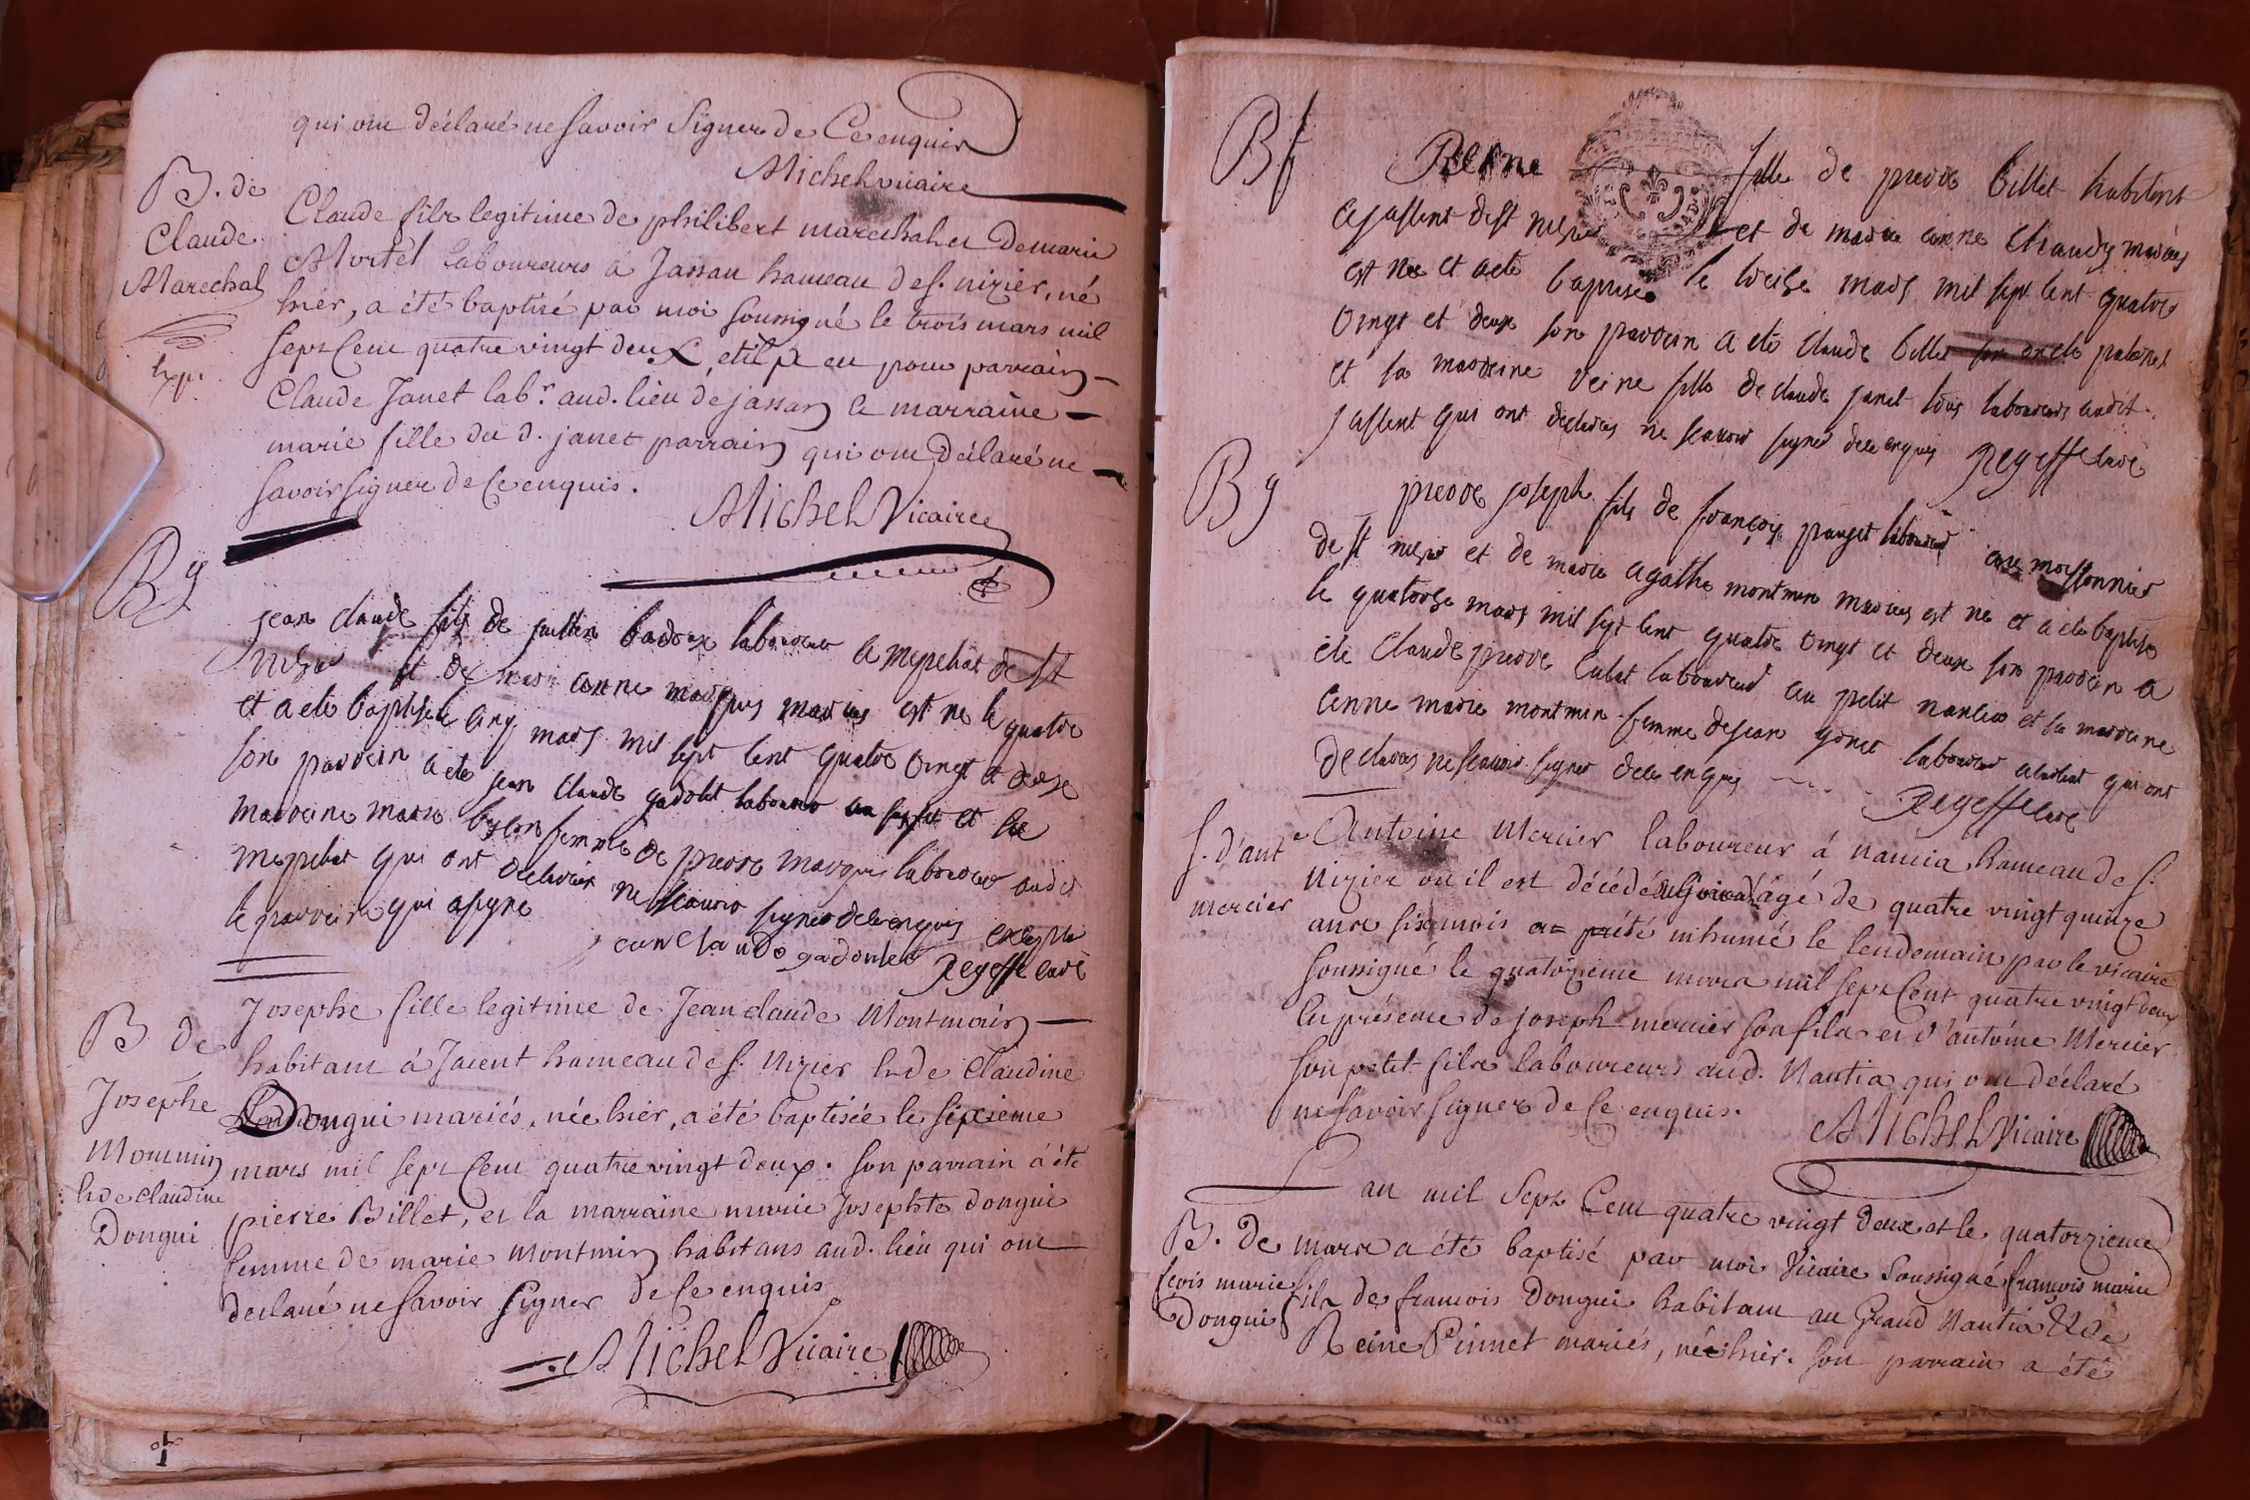 qui ont déclaré ne savoir signer de ce enquis
Michel vicaire
B. de
Claude
Marechal
Claude fils legitime de philibert marechal et de marie
Mortel laboureurs à Jassan hameau de s. nizier, né
hier, a été baptisé par moi soussigné le trois mars mil
sept cent quatre vingt deux, et il a eu pour parrain
Claude Janet lab.r aud. lieu de jassan et marraine
marie fille du d. janet parrain qui ont déclaré ne
savoir signer de ce enquis.
Michel Vicaire
B g
jean claude fils de badoux laboureur a mepeliat de st
nizier et de marie anne marquis maries est ne le quatre
et a ete baptise le cinq mars mil sept cent quatre vingt et deux
son parrein a ete jean claude gadolet laboureur et sa
marreine marie femme de pierre marquis laboureur audit
mepeliat qui ont declares ne scavoir signer de ce enquis excepte
le parrein qui a signe
jean claude gadoulet Regeffe curé
B de
Josephe
Monmin
& de claudine
Dongui
Josephe fille legitime de Jean claude Montmain
habitant à Jacent hameau de s. Nizier & de Claudine
Dongui mariés, née hier, a été baptisée le sixieme
mars mil sept cent quatre vingt deux. son parrain a été
pierre Billet, et la marraine marie Josephte dongui
femme de marie montmin habitans aud. lieu qui ont
declaré ne savoir signer de ce enquis
Michel Vicaire
B f
Reine fille de pierre billet habitant
a jassent de st nizier et de marie anne chaudy maries
est nee et a ete baptisee le treize mars mil sept cent quatre
vingt et deux son parrein a ete claude billet son oncle paternel
et sa marreine reine fille de claude janet tous laboureurs audit
jassent qui ont declares ne scavoir signer de ce enquis Regeffe curé
B g
pierre joseph fils de françois pauget laboureur
de st nizier et de marie agathe montmin maries est ne et a ete baptise
le quatorze mars mil sept cent quatre vingt et deux son parrein a
ete claude pierre laboureur au petit nancia et sa marreine
anne marie montmin femme de jean laboureur qui ont
declares ne scavoir signer de ce enquis
Regeffe curé
s. d'ant.e
mercier
Antoine Mercier laboureur à nancia hameau de s.
Nizier où il est décédé âgé de quatre vingt quinze
ans six mois a été inhumé le lendemain par le vicaire
soussigné le quatorzieme mars mil sept cent quatre vingt deux
en présence de joseph mercier son fils et d'antoine Mercier
son petit-fils laboureurs aud. Nantia qui ont déclaré
ne savoir signer de ce enquis.
Michel Vicaire
L'an mil sept cent quatre vingt deux et le quatorzieme
B. de
fçois marie
Dongui
mars a été baptisé par moi Vicaire soussigné françois marie
fils de francois Dongui habitant au Grand Nantia & de
Reine Pinnet mariés, né hier. son parrain a été